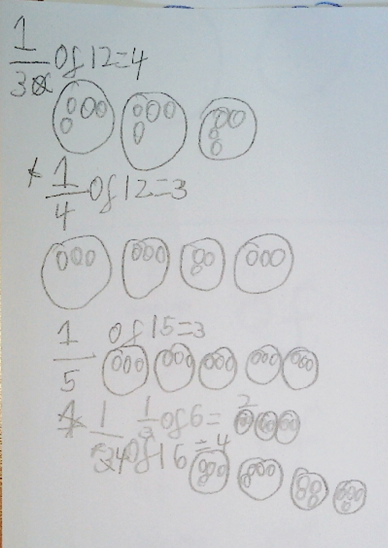 1/3 of 12=4
* 1/4 of 12=3
1/5 of 15=3
1/3 of 6= 2
* 1/4 of 16=4